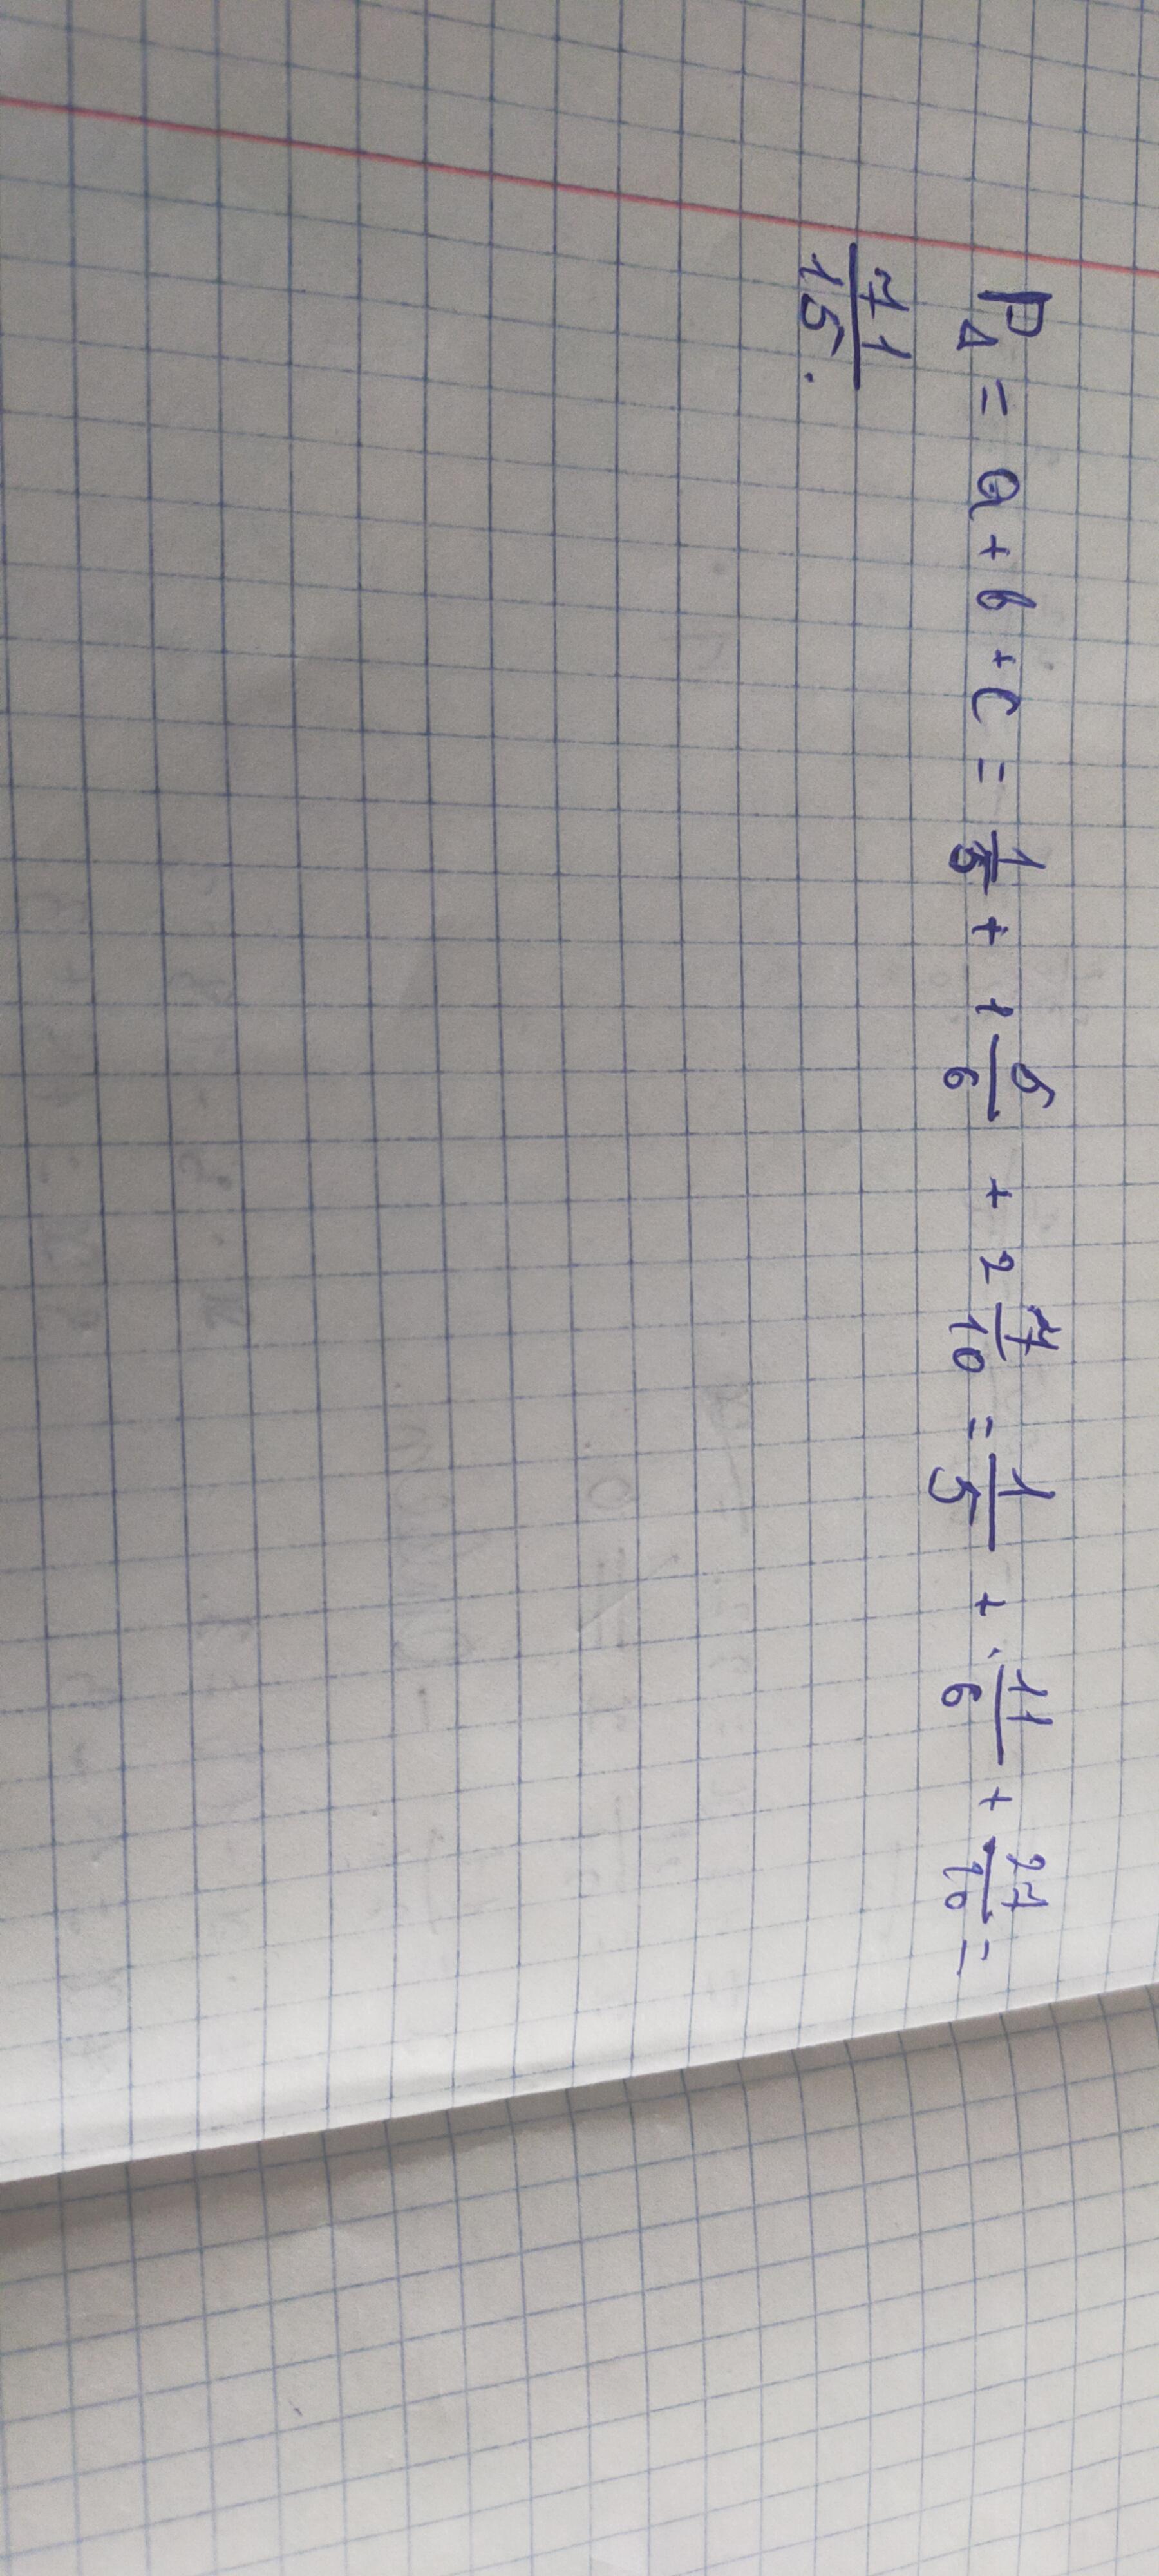 P△ = a + b + c = 1/5 + 1 5/6 + 2 7/10 = 1/5 + 11/6 + 27/10 =
71/15.